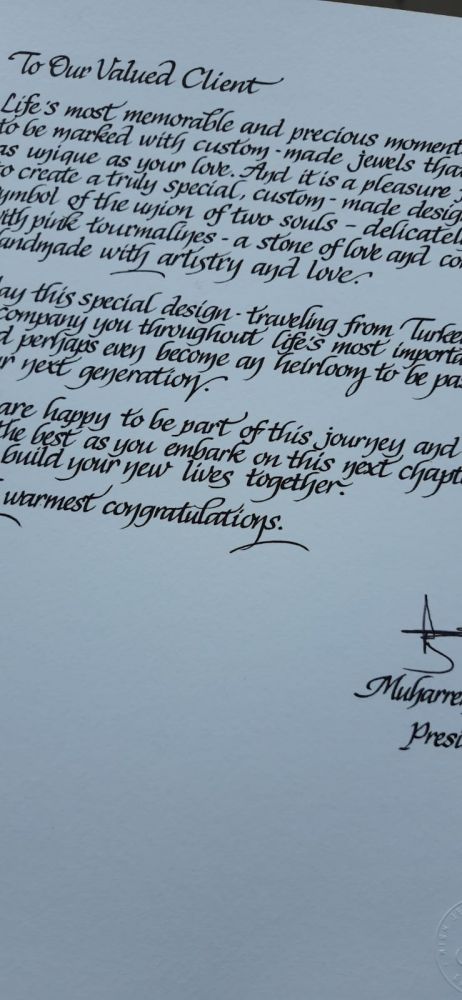 To Our Valued Client
Life's most memorable and precious moment
to be marked with custom-made jewels tha
as unique as your love. And it is a pleasure
to create a truly special, custom-made desig
ymbol of the union of two souls - delicatel
ith pink tourmalines - a stone of love and co
andmade with artistry and love.
ay this special design - traveling from Turke
company you throughout life's most importa
d perhaps even become an heirloom to be pa
r next generation.
are happy to be part of this journey and
the best as you embark on this next chapt
build your new lives together.
warmest congratulations.
Muharre
Presi